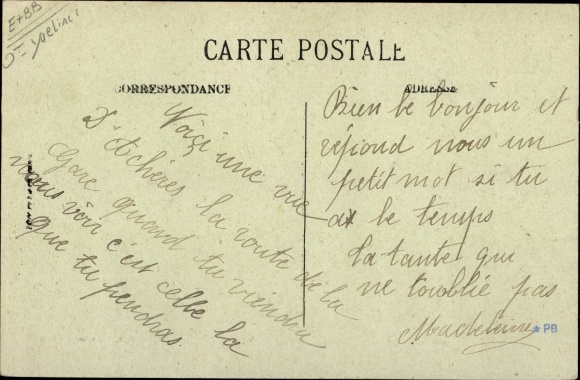 E+BB
CARTE POSTALE
CORRESPONDANCE
ADRESSE
Voiçi une vue
D'Achères la route de la
Gare quand tu viendra
nous voir c'est celle la
que tu pendras.
Bien le bonjour et
répond nous un
petit mot si tu
as le temps
ta tante qui
ne t'oublie pas
Madeleine
PB